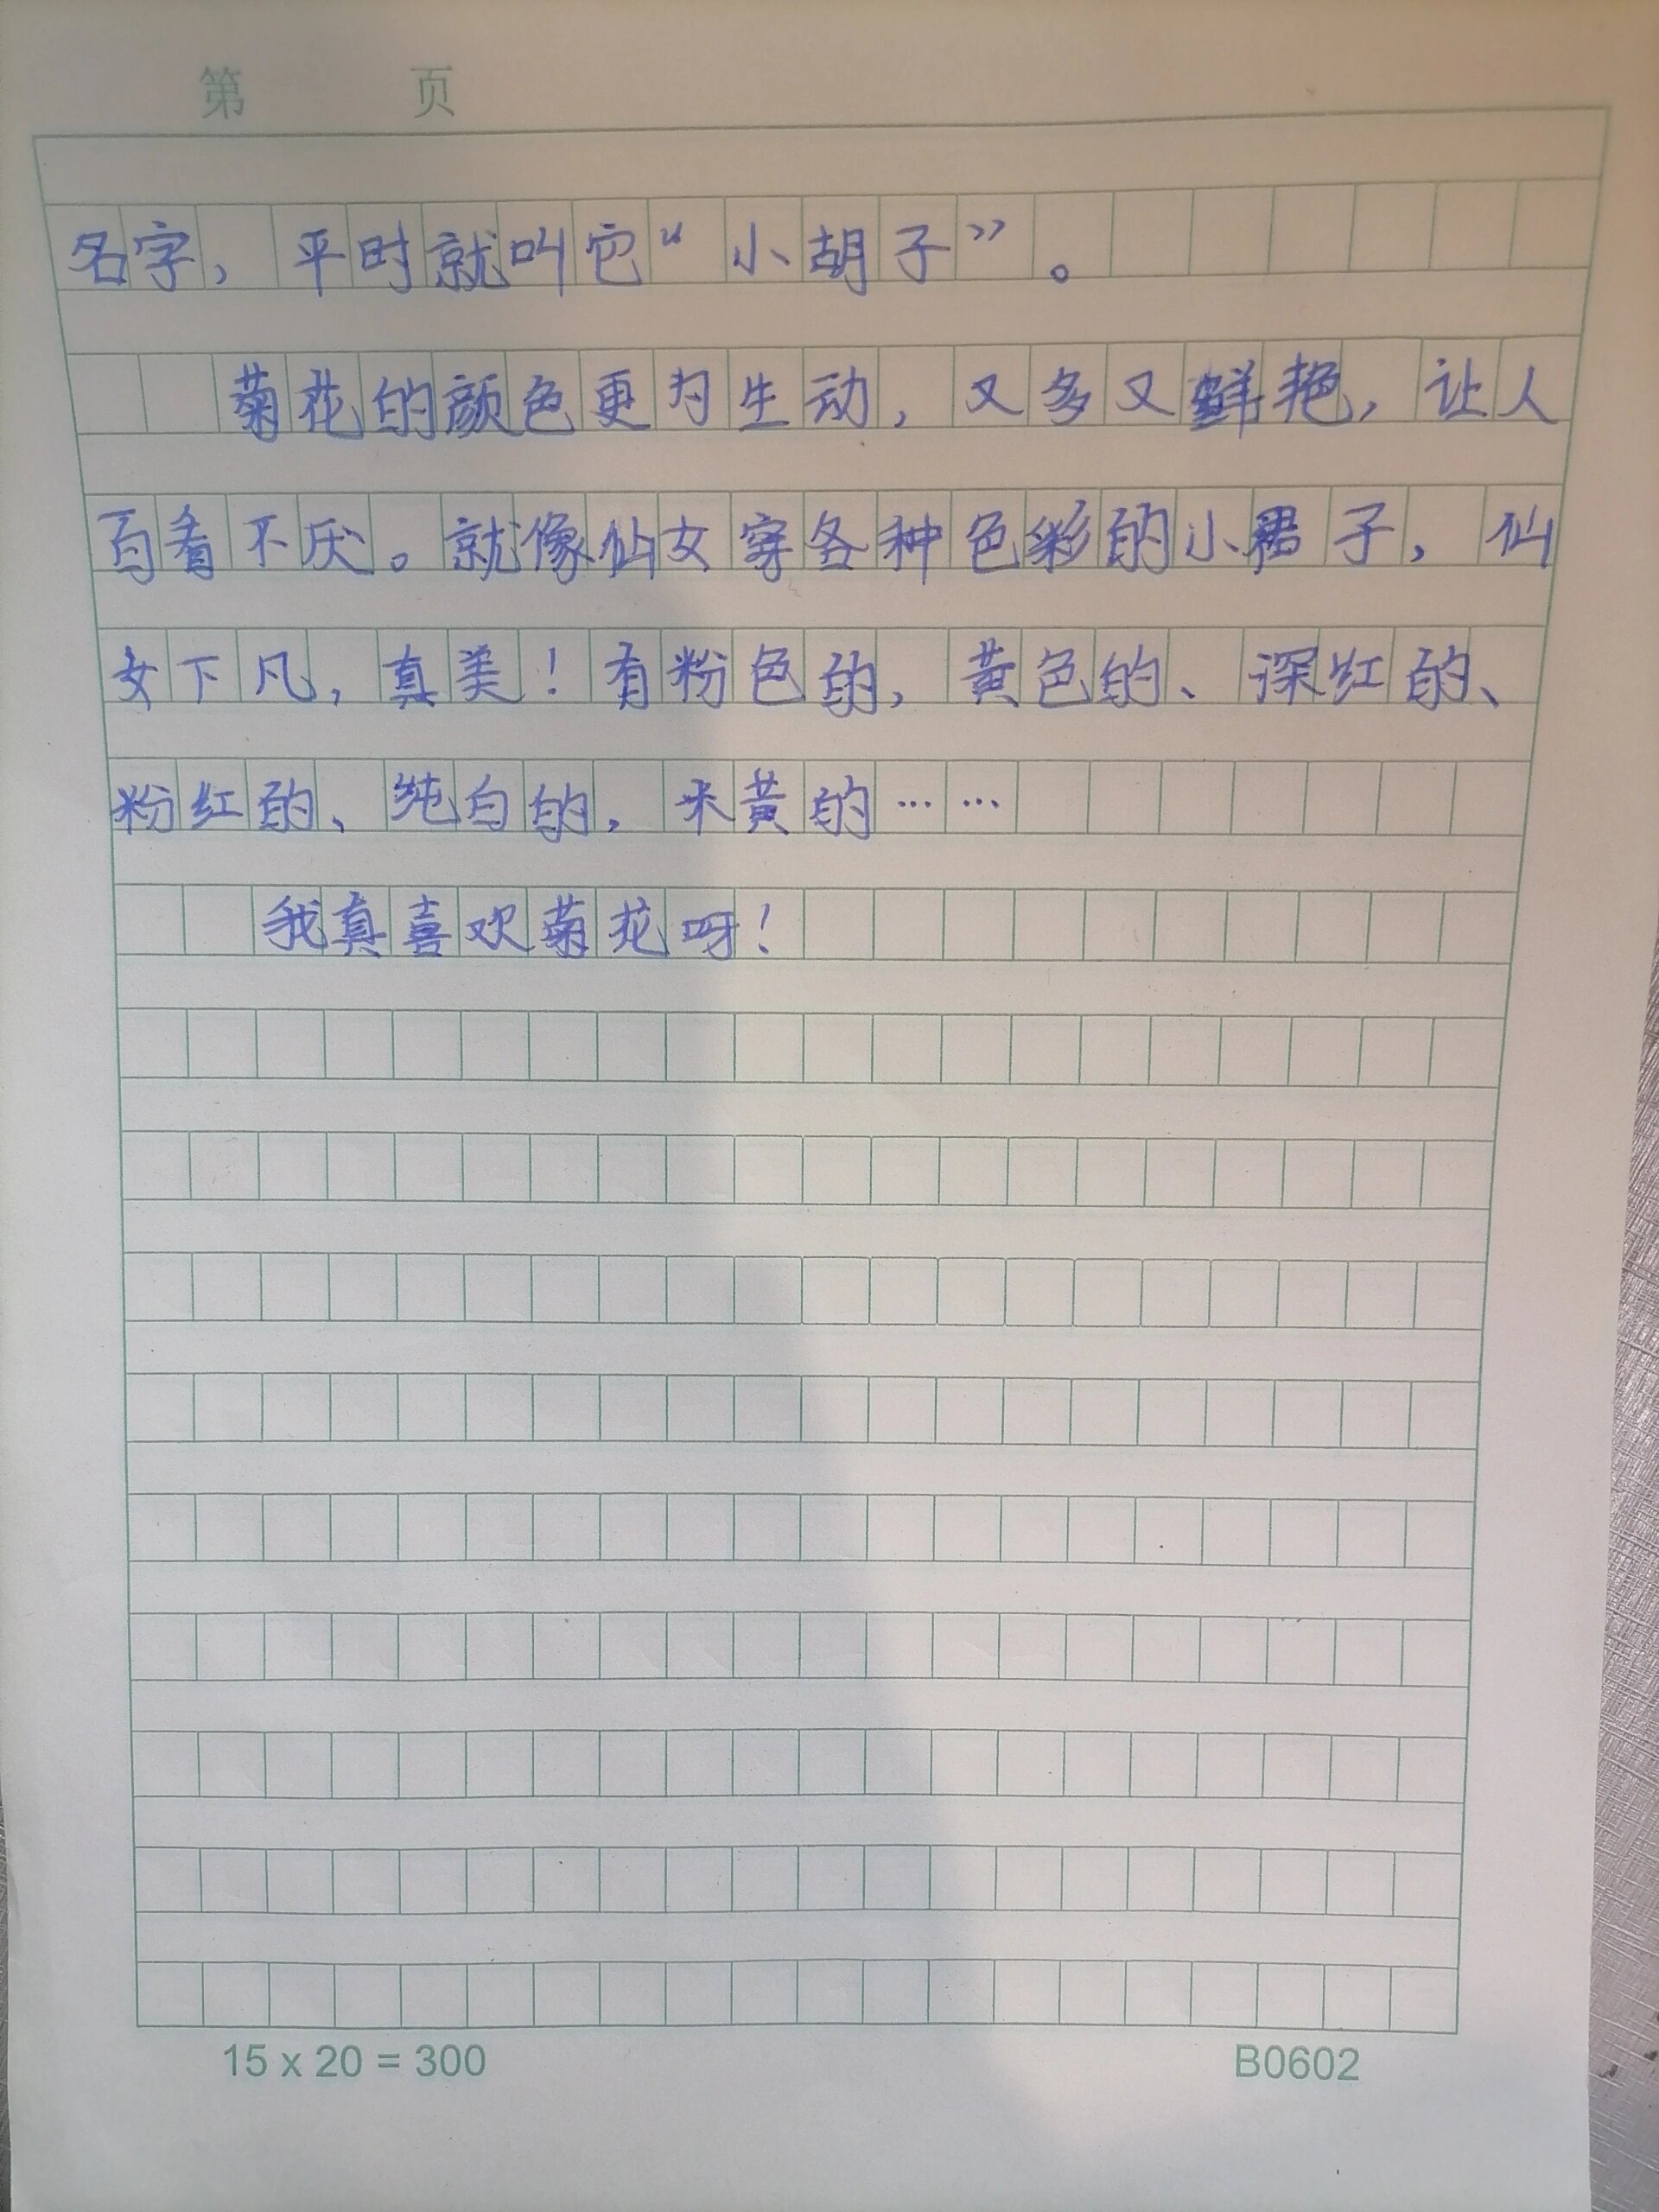 第 页
名字，平时就叫它“小胡子”。
菊花的颜色更为生动，又多又鲜艳，让人
百看不厌。就像仙女穿各种色彩的小裙子，仙
女下凡，真美！有粉色的，黄色的、深红的、
粉红的、纯白的，米黄的……
我真喜欢菊花呀！
15 x 20 = 300 B0602